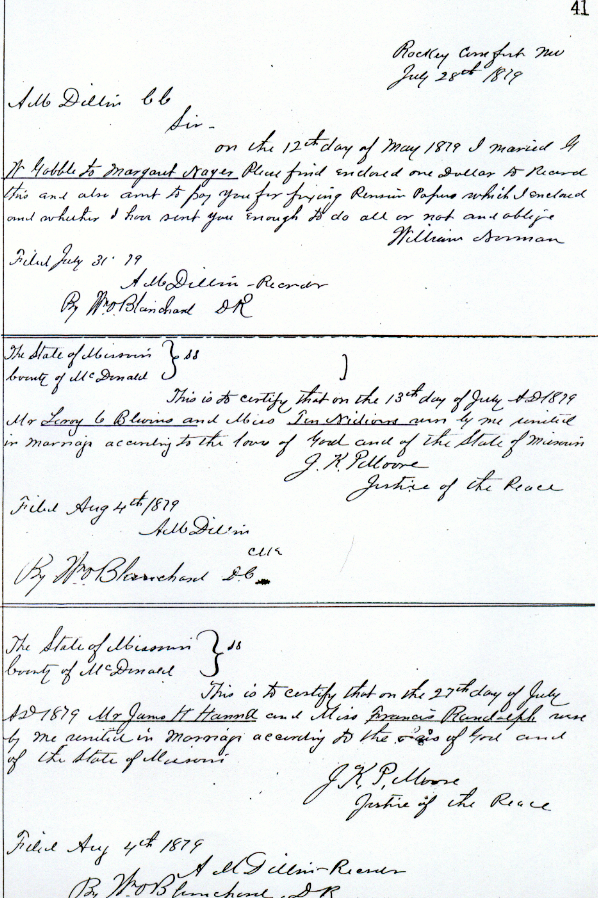 41
Rockey Comfort Mo
July 28th 1879
A M Dillin CC
Sir -
on the 12th day of May 1879 I married G
W Gobble to Margaret Nayes Pleas find enclosed one Dollar to Record
this and also amt to pay you for fixing Pension Papers which I enclosed
and whether I have sent you enough to do all or not and oblige
William Norman
Filed July 31 79
A M Dillin - Recorder
By Wm O Blanchard DR
The State of Missouri } ss
County of McDonald
This is to certify that on the 13th day of July AD 1879
Mr Leroy C Blevins and Miss were by me united
in marriage according to the laws of God and of the State of Missouri
J. K. P. Moore
Justice of the Peace
Filed Aug 4th 1879
A M Dillin
Clk
By Wm O Blanchard D.C.
The State of Missouri } ss
County of McDonald
This is to certify that on the 27th day of July
AD 1879 Mr James H Hanna and Miss Francis Randolph were
by me united in marriage according to the of God and
of the State of Missouri
J. K. P. Moore
Justice of the Peace
Filed Aug 4th 1879
A M Dillin - Recorder
By Wm O Blanchard D R